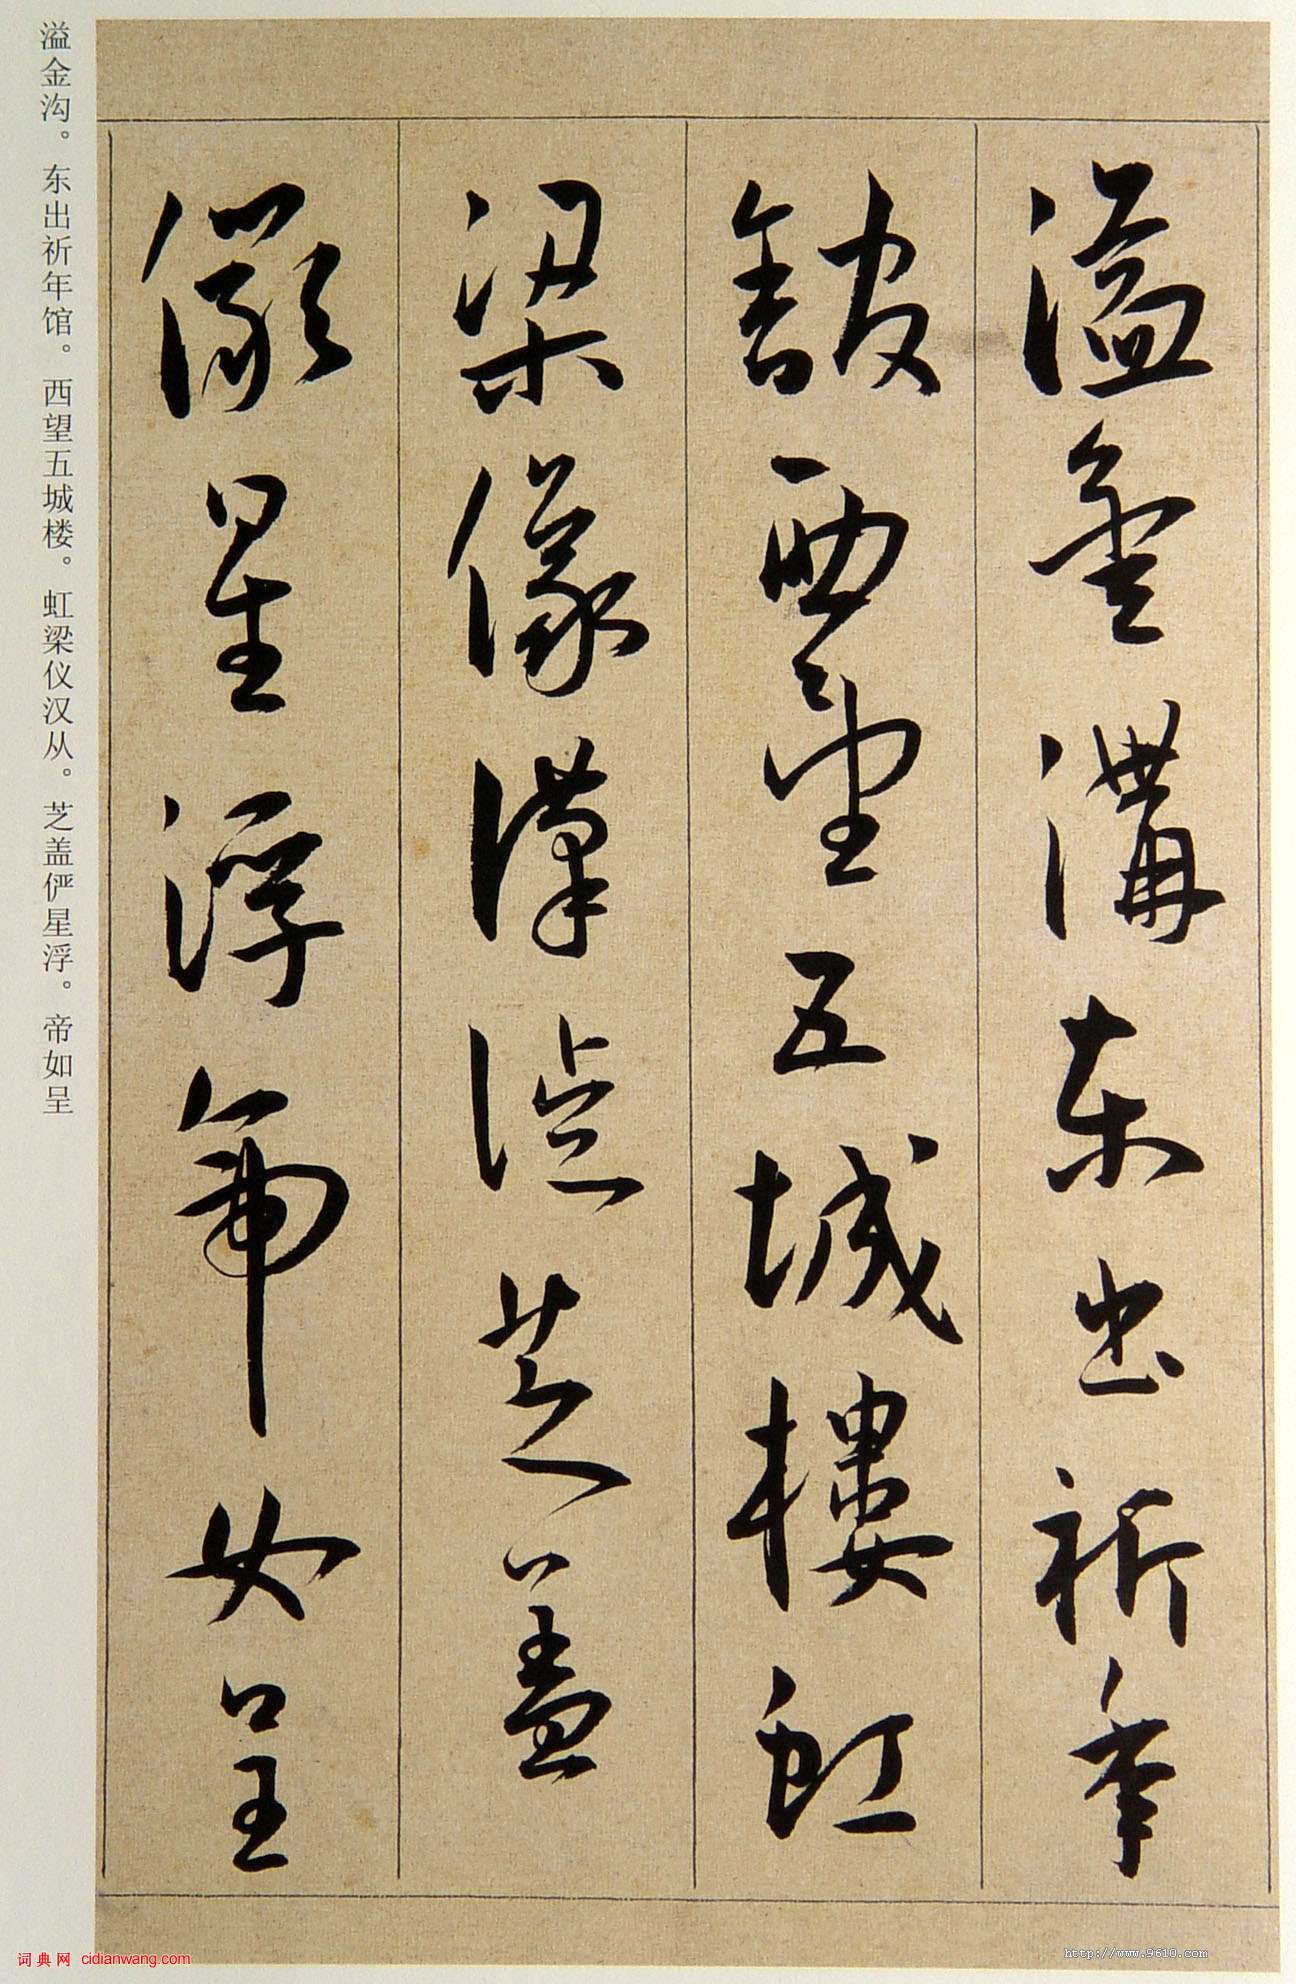 溢金溝東出祈年
館西望五城樓虹
梁儀漢從芝蓋
儼星浮帝如呈
溢金沟。东出祈年馆。西望五城楼。虹梁仪汉从。芝盖俨星浮。帝如呈
词典网 cidianwang.com
http://www.9610.com